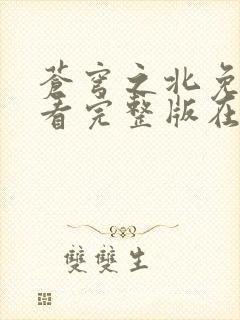 蒼穹之北免
看完整版在
雙雙生